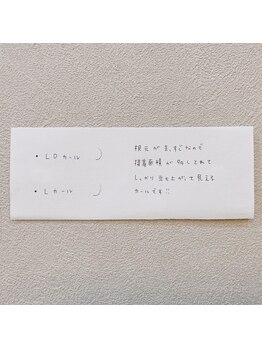 ・LDカール
・Lカール
根元がまっすぐなので
接着面積が多くとれて
しっかり立ち上がって見える
カールです!!